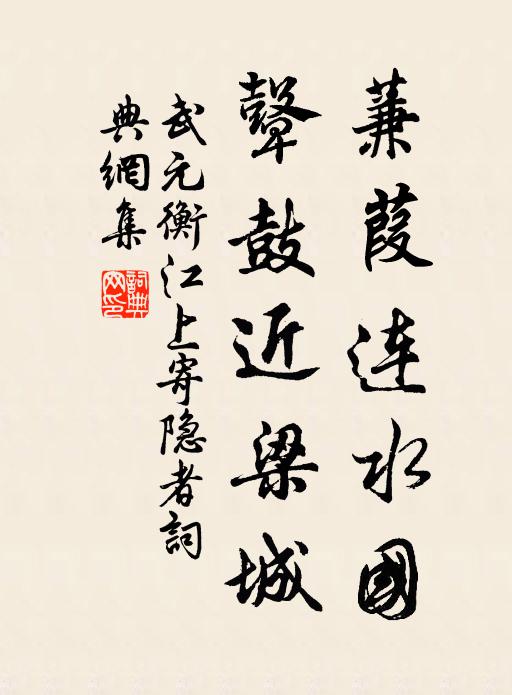 蒹葭连水國
鼙鼓近梁城
武元衡江上寄隐者詞
典網集
詞典网印